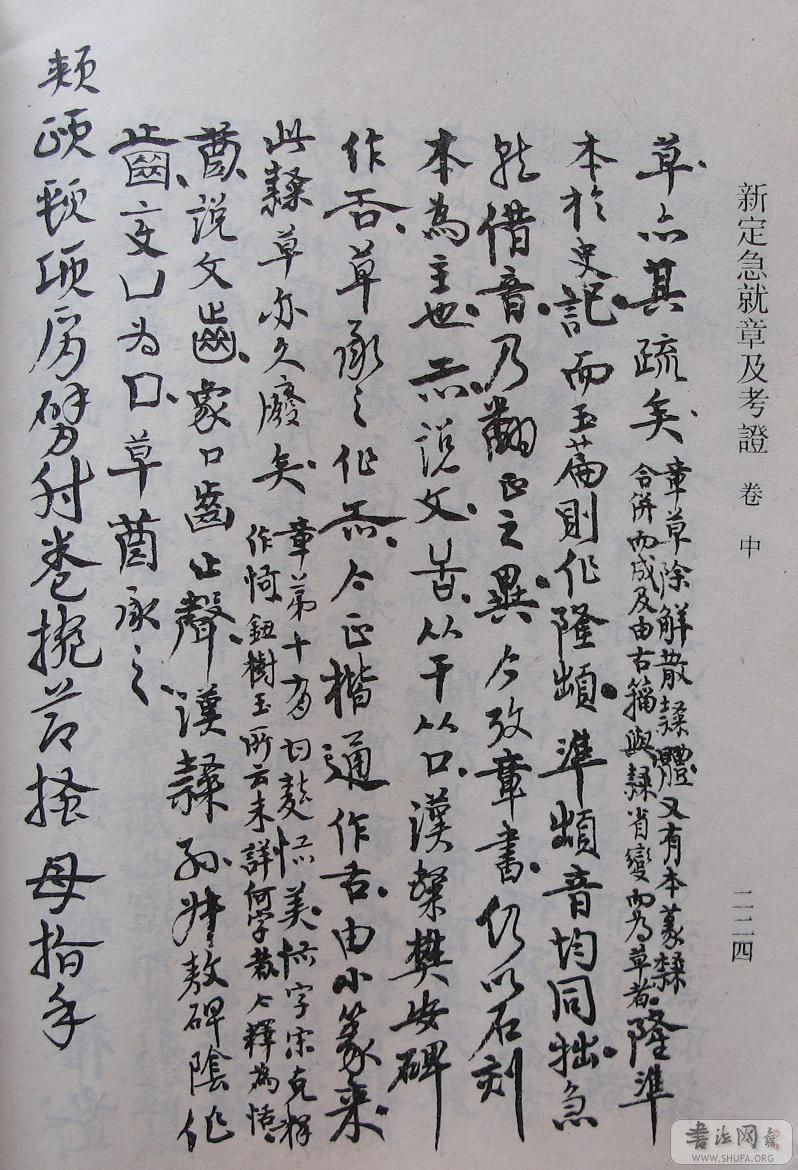 新定急就章及考證 卷中
二二四
草亦其疏矣 章草除解散隸體又有本篆隸
合併而成及由古籀與隸省變而為草者 隆準
本於史記而玉篇則作隆䪼準䪼音均同拙急
就借音乃翻正之異今攷章書仍以石刻
本為主也 說文舌从干从口漢隸樊安碑
作舌草承之作 今正楷通作舌由小篆來
此隸草亦久廢矣 章第十有 美 字宋克釋
作 鈕樹玉所云未詳何字 七釋為恬
說文齒象口齒止聲漢隸孫叔敖碑陰作
齒 凵為口草 承之
頰頤頸項肩臂肘卷捥節搔母指手
書法网
WWW.SHUFA.ORG